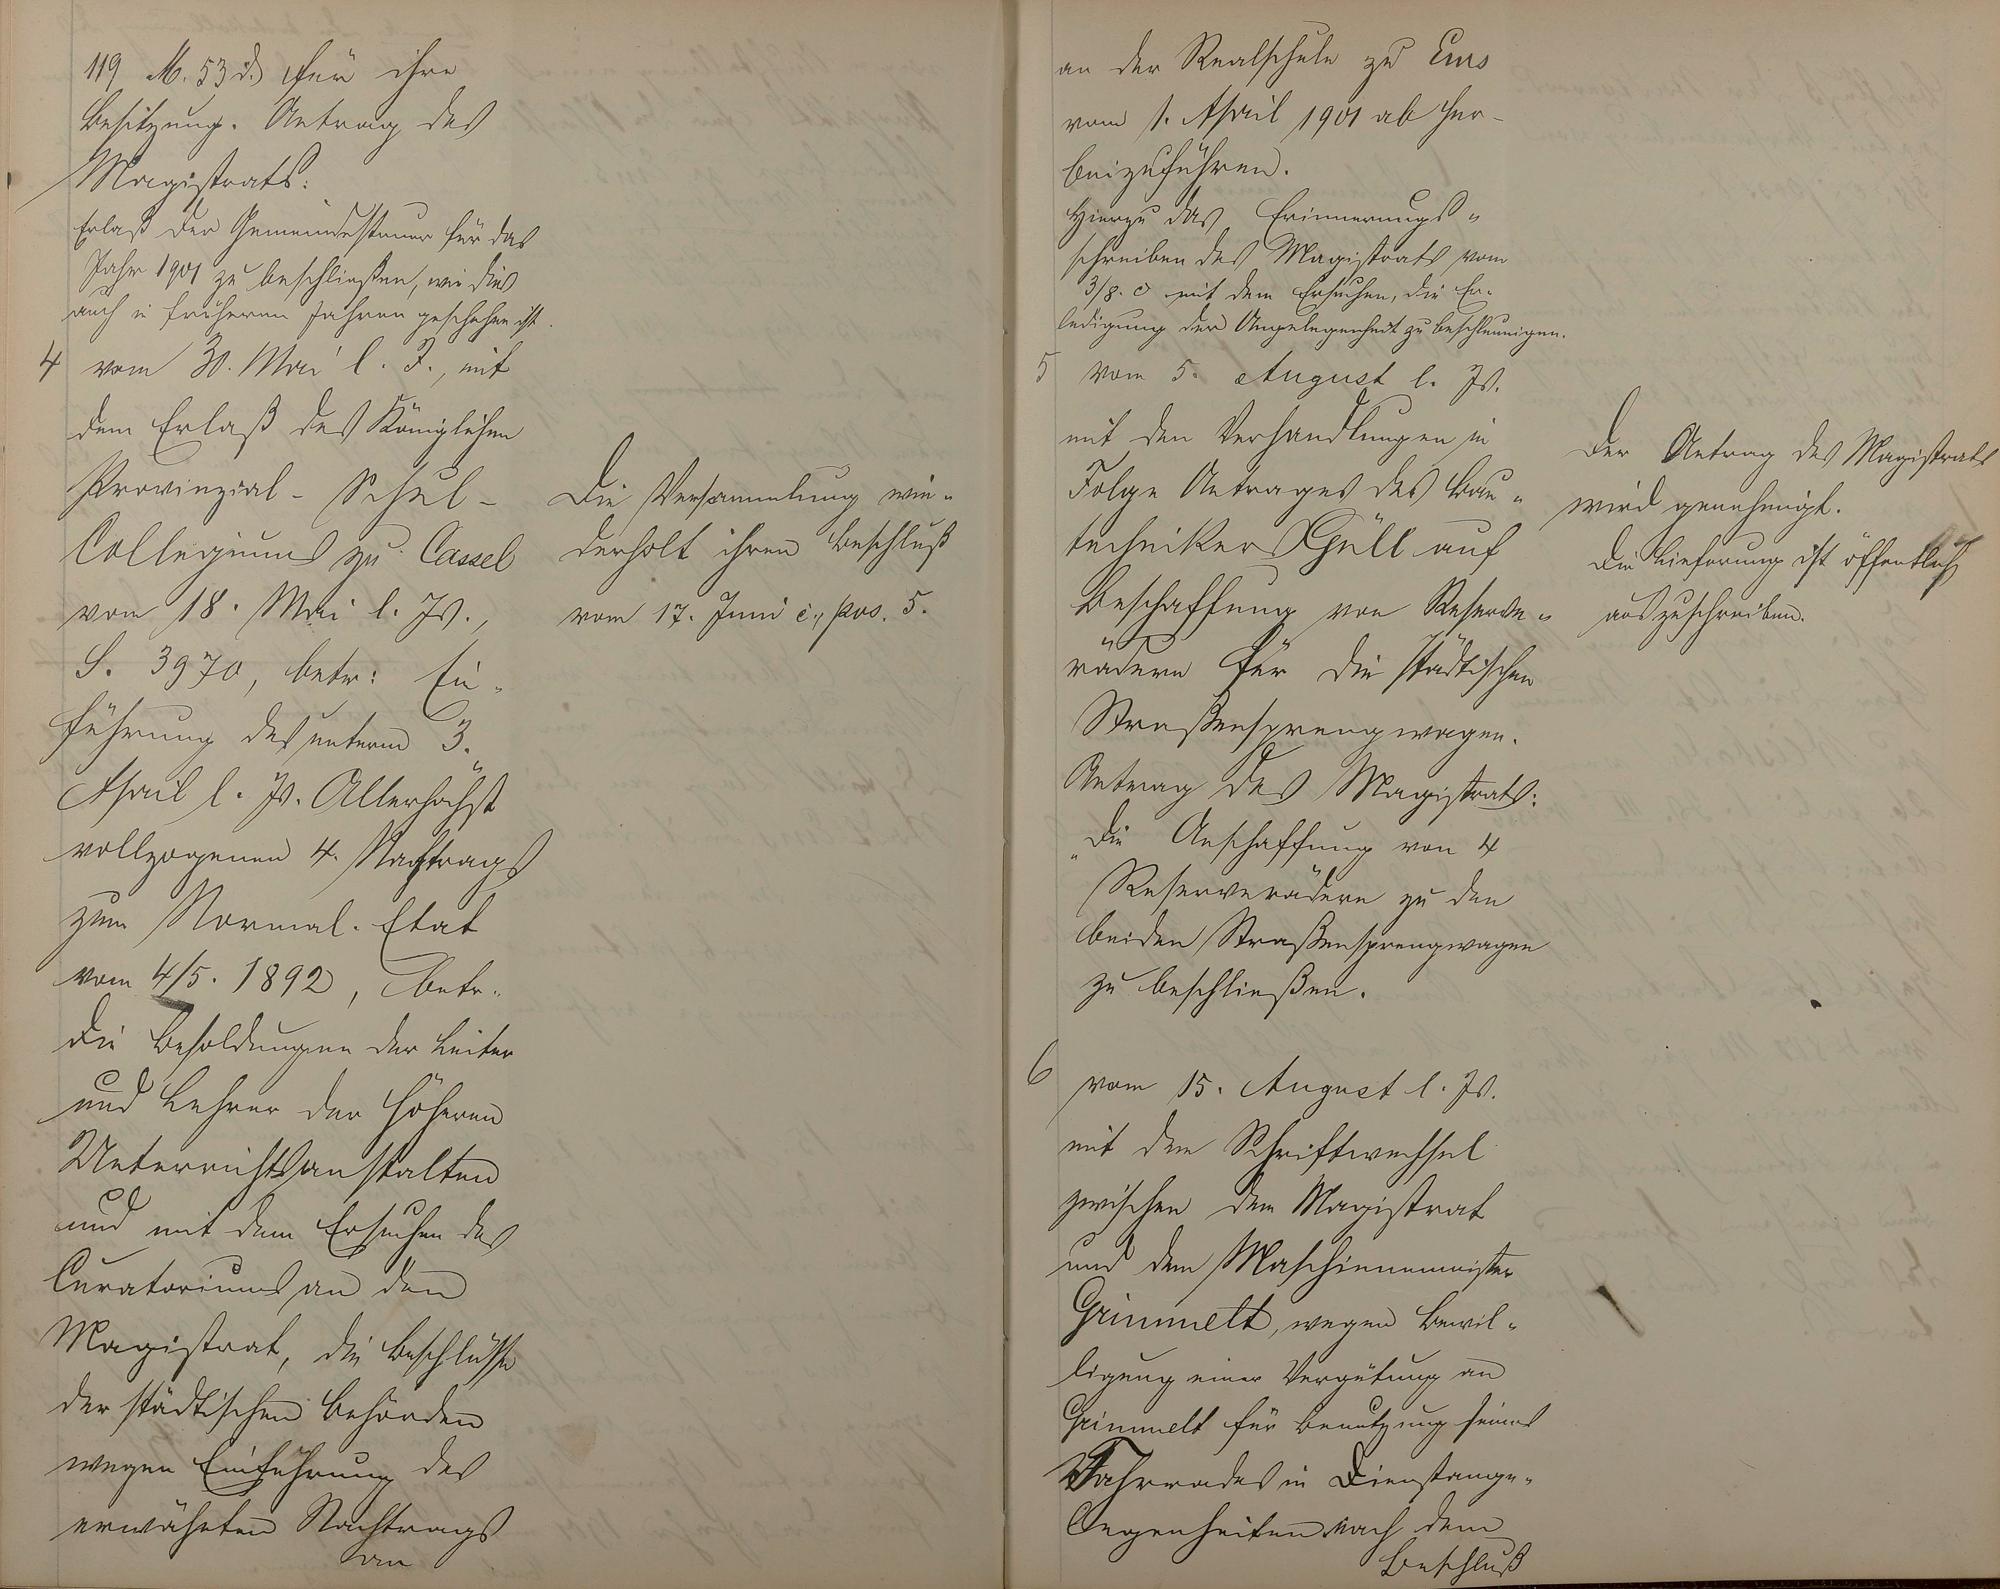 119 M. 53 d.) für ihre
Besitzung. Antrag des
Magistrats:
Erlaß der Gemeindesteuer für das
Jahr 1901 zu beschließen, wie dies
auch in früheren Jahren geschehen ist.
4 vom 30. Mai l. J., mit
dem Erlaß des Königlichen
Provinzial-Schul-
Collegiums zu Cassel
vom 18. Mai l. Js.,
S. 3970, betr: Ein-
führung des unterm 3.
April l. Js. Allerhöchst
vollzogenen 4. Nachtrags
zum Normal-Etat
vom 4/5. 1892, betr.
die Besoldungen der Leiter
und Lehrer der höheren
Unterrichtsanstalten
und mit dem Ersuchen des
Curatoriums an den
Magistrat, die Beschlüsse
der städtischen Behörden
wegen Einführung des
erwähnten Nachtrags
an
Die Versammlung wie-
derholt ihren Beschluß
vom 17. Juni c., pos. 5.
an der Realschule zu Ems
vom 1. April 1901 ab her-
beizuführen.
Hierzu das Erinnerungs-
schreiben des Magistrats vom
3/8. c mit dem Ersuchen, die Er-
ledigung der Angelegenheit zu beschleunigen.
5 vom 5. August l. Js.
mit den Verhandlungen in
Folge Antrages des Bau-
technikers Güll auf
Beschaffung von Reserve-
rädern für die städtischen
Straßensprengwagen.
Antrag des Magistrats:
"Die Anschaffung von 4
Reserverädern zu den
beiden Straßensprengwagen
zu beschließen.
Der Antrag des Magistrats
wird genehmigt.
Die Lieferung ist öffentlich
auszuschreiben.
6 vom 15. August l. Js.
mit dem Schriftwechsel
zwischen dem Magistrat
und dem Maschinenmeister
Grimmelt, wegen Bewil-
ligung einer Vergütung an
Grimmelt für Benutzung seines
Fahrrades in Dienstange-
legenheiten nach dem
Beschluß